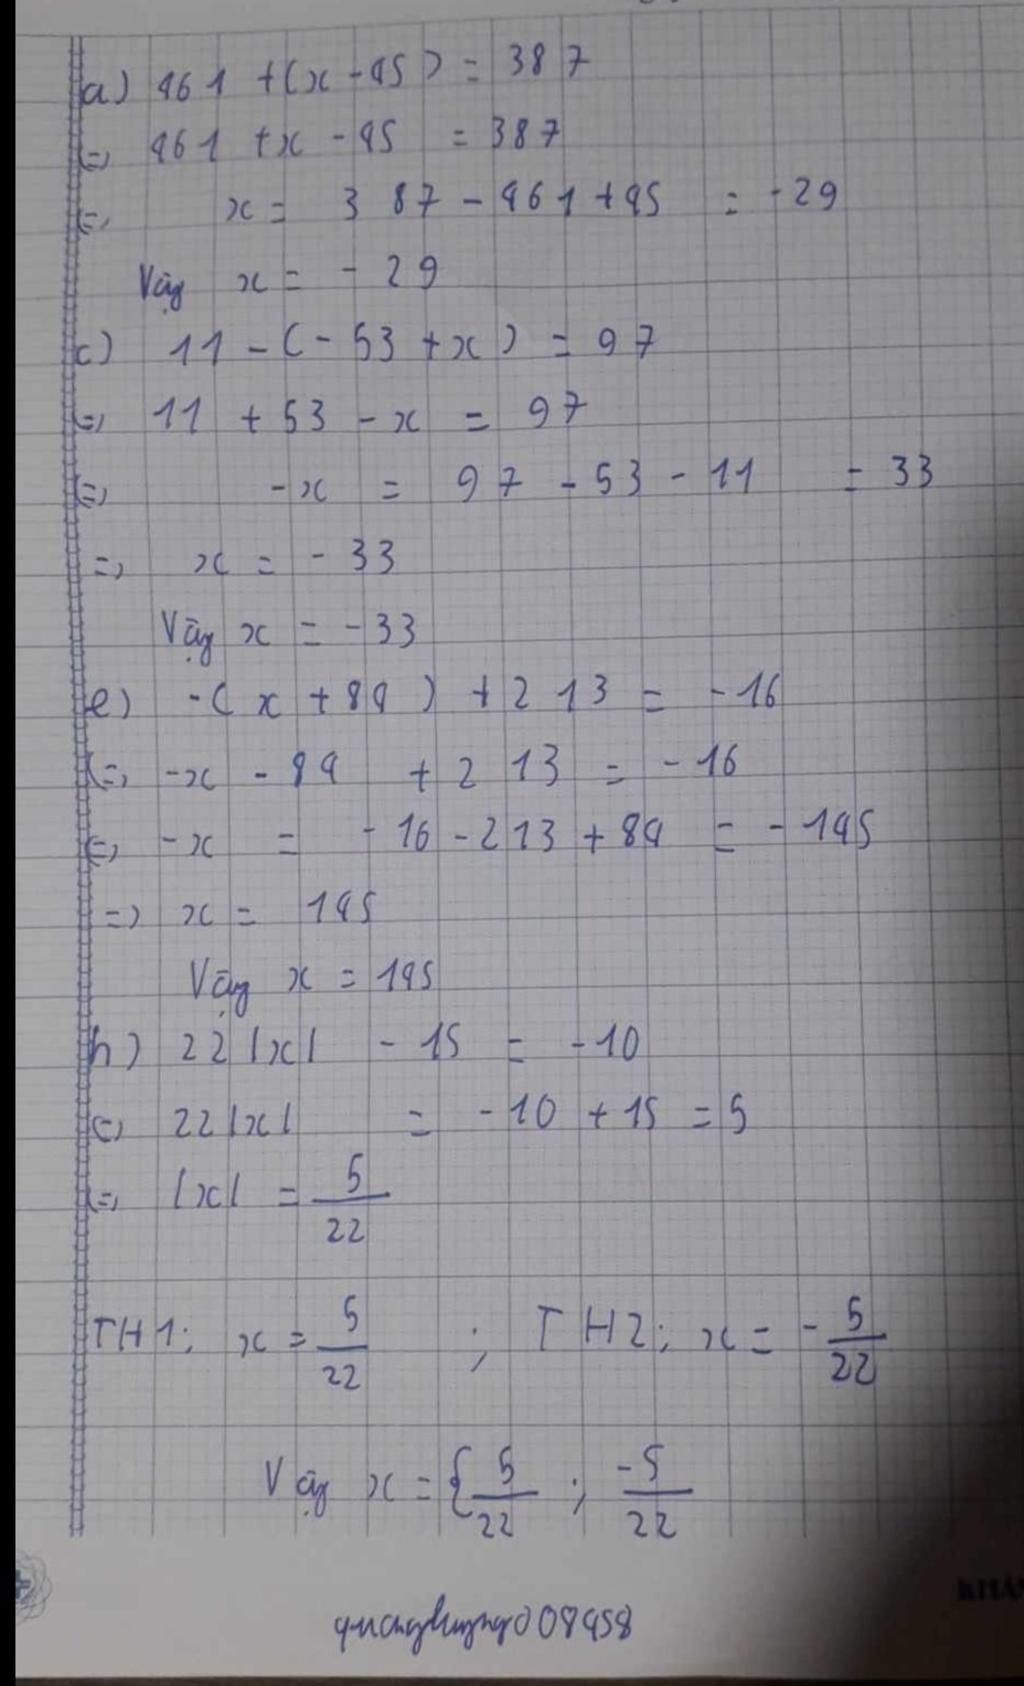 a) 461 + (x - 45) = 387
<=> 461 + x - 45 = 387
<=> x = 387 - 461 + 45 = -29
Vậy x = -29
c) 11 - (-53 + x) = 97
<=> 11 + 53 - x = 97
<=> -x = 97 - 53 - 11 = 33
=> x = -33
Vậy x = -33
e) -(x + 84) + 213 = -16
<=> -x - 84 + 213 = -16
<=> -x = -16 - 213 + 84 = -145
=> x = 145
Vậy x = 145
h) 22|x| - 15 = -10
<=> 22|x| = -10 + 15 = 5
<=> |x| = 5/22
TH1: x = 5/22 ; TH2: x = -5/22
Vậy x = {5/22 ; -5/22